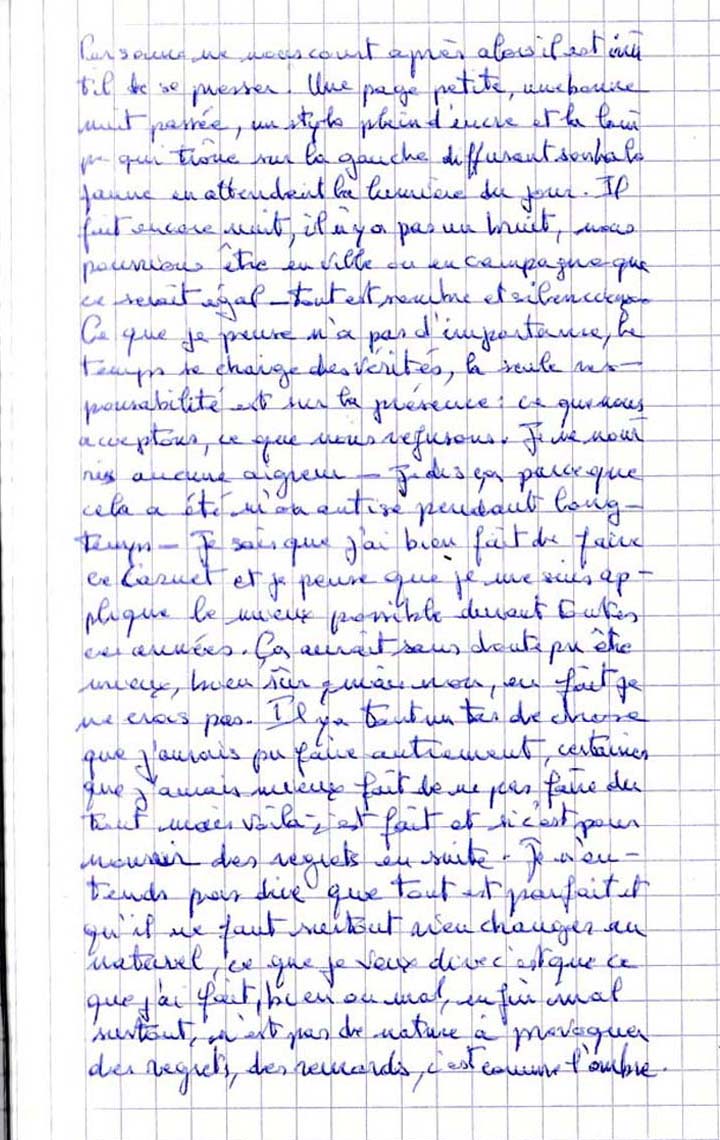 Personne ne nous court après alors il est inu
til de se presser. Une page petite, une bonne
nuit passée, un stylo plein d'encre et la lam
pe qui trône sur la gauche diffusant son halo
jaune en attendant la lumière du jour. Il
fait encore nuit, il n'y a pas un bruit, nous
pourrions être en ville ou en campagne que
ce serait égal – tout est sombre et silencieux.
Ce que je pense n'a pas d'importance, le
temps se charge des vérités, la seule res-
ponsabilité est sur la présence : ce que nous
acceptons, ce que nous refusons. Je ne nour
ris aucune aigreur – Je dis ça parce que
cela a été pendant long-
temps – Je sais que j'ai bien fait de faire
ce carnet et je pense que je me suis ap-
pliqué le mieux possible durant toutes
ces années. Ça aurait sans doute pu être
mieux, bien sûr que non, en fait je
ne crois pas. Il y a tout un tas de chose
que j'aurais pu faire autrement, certaines
que j'aurais mieux fait de ne pas faire du
tout mais voilà, c'est fait et si c'est pour
nourrir des regrets ensuite. Je n'en-
tends pas dire que tout est parfait et
qu'il ne faut surtout rien changer au
naturel, ce que je veux dire c'est que ce
que j'ai fait, bien ou mal, enfin mal
surtout, n'est pas de nature à provoquer
des regrets, des remords, c'est comme l'ombre.